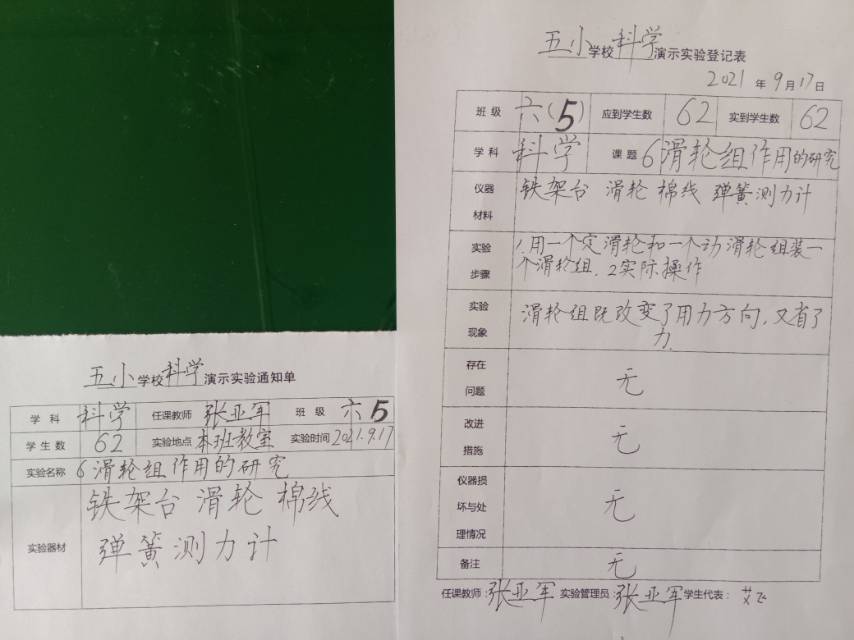 五小学校科学演示实验通知单
学科 科学 任课教师 张亚军 班级 六5
学生数 62 实验地点 本班教室 实验时间 2021.9.17
实验名称 6滑轮组作用的研究
实验器材 铁架台 滑轮 棉线
弹簧测力计
五小学校科学演示实验登记表
2021年9月17日
班级 六(5) 应到学生数 62 实到学生数 62
学科 科学 课题 6滑轮组作用的研究
仪器材料 铁架台 滑轮 棉线 弹簧测力计
实验步骤 1.用一个定滑轮和一个动滑轮组装一
个滑轮组.2实际操作
实验现象 滑轮组既改变了用力方向,又省了
力.
存在问题 无
改进措施 无
仪器损坏与处理情况 无
备注 无
任课教师:张亚军 实验管理员:张亚军 学生代表: